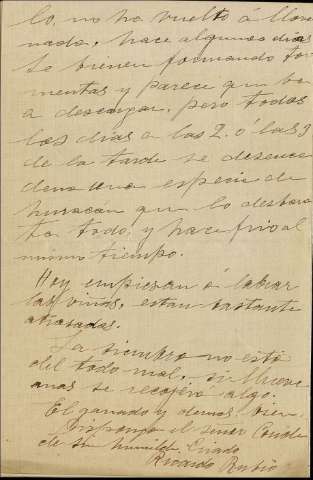 lo, no ha vuelto á llover
nada, hace algunos dias
se vienen formando tor
mentas y parece que va
a descargar, pero todos
los dias a las 2. ó las 3
de la tarde se desenca
dena una especie de
huracán que lo desbara
ta todo, y hace frio al
mismo tiempo.
Hoy empiezan á labrar
las viñas, estan bastante
atrasadas.
La siembra no está
del todo mal, si llueve
se recojera algo.
El ganado y demas, bien.
Disponga el señor Conde
de su humilde Criado
Ricardo Rubio